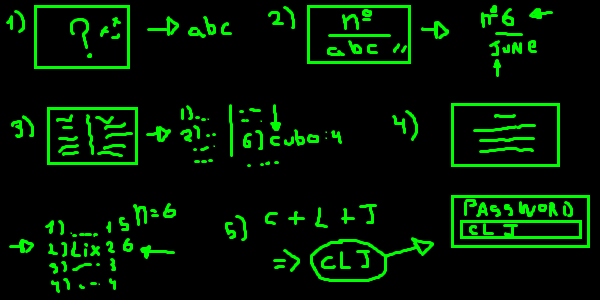 1) ? → abc
2) nº
abc "
→ nº6 ←
JUNE
3) → 1)...
2)...
6) cubo:4
4)
→ 1).... 1 5 n=6
2) Lix 2 6 ←
3) 3
4) ... 4
5) C + L + J
=> CLJ
PASSWORD
CLJ